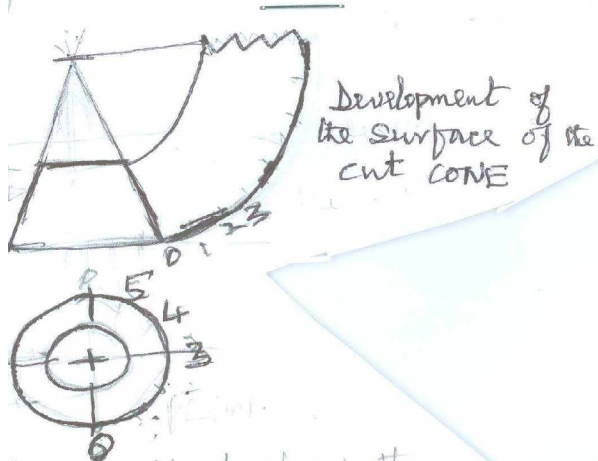 Development of
the Surface of the
cut CONE
0 1 2 3
5
4
3
0